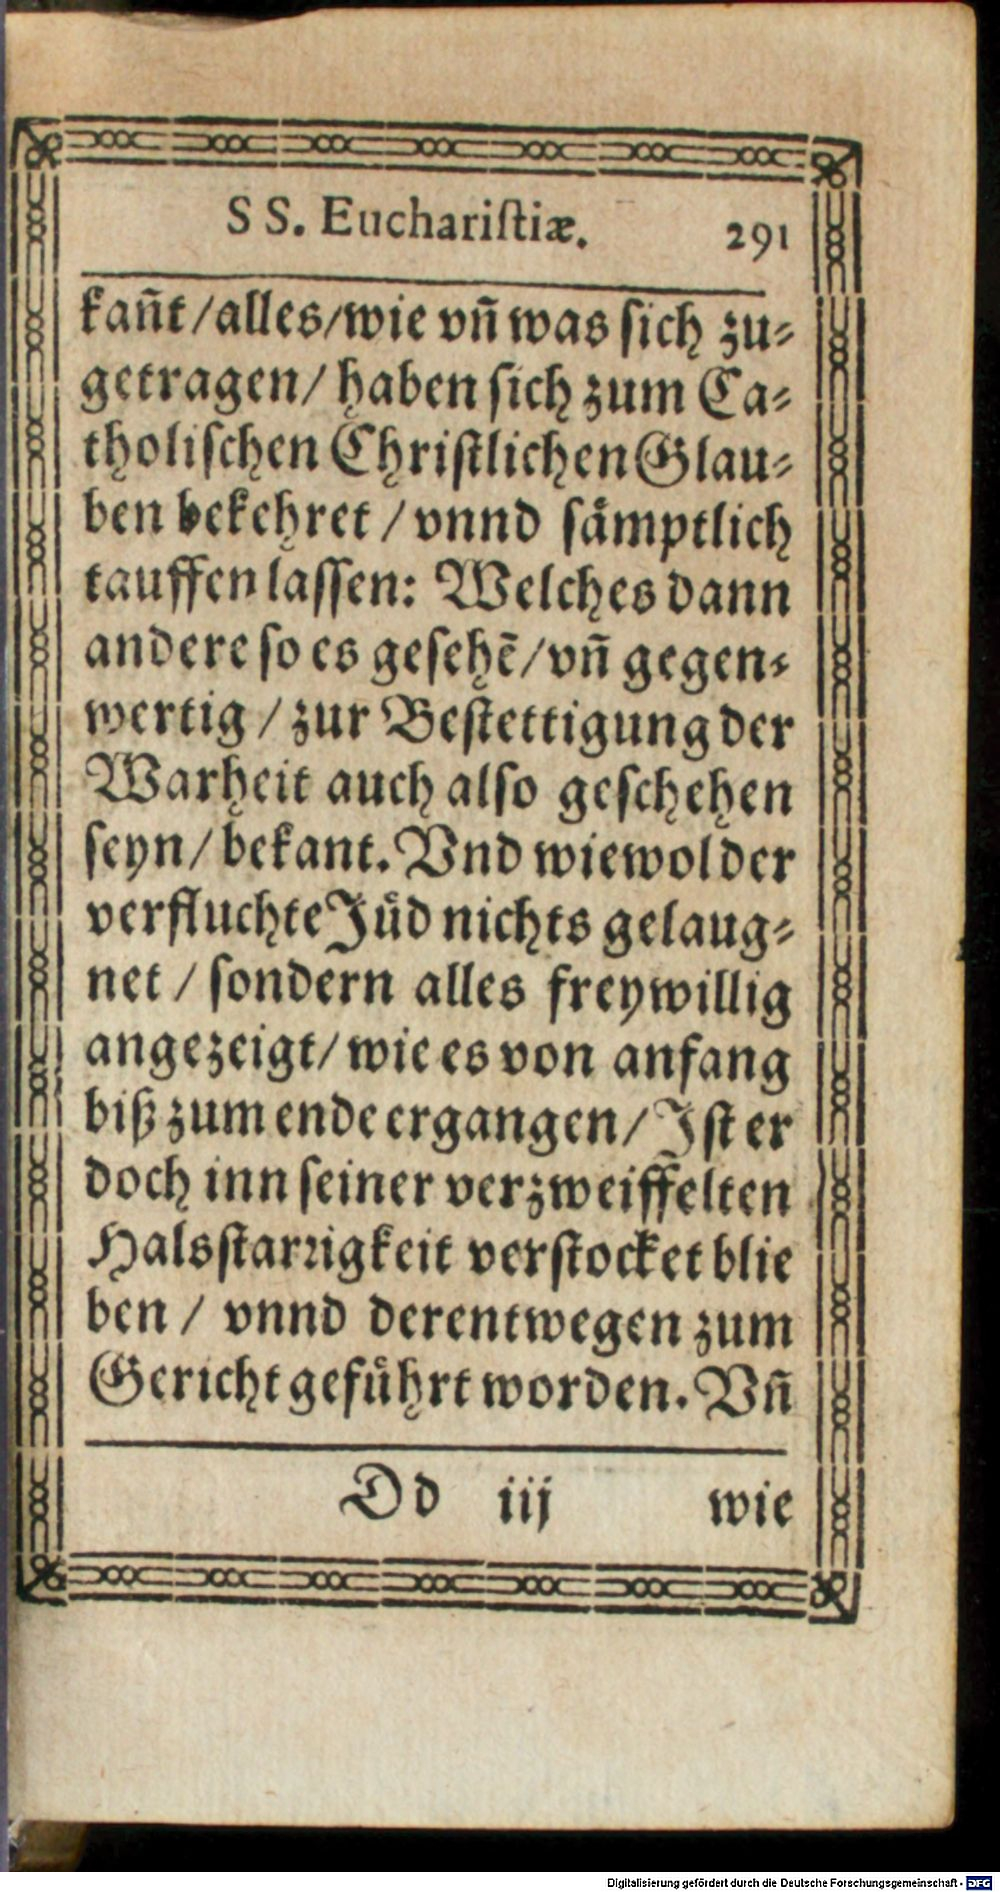 SS. Euchariſtiæ. 291
kañt/alles/wie vñ was ſich zu⸗
getragen/ haben ſich zum Ca⸗
tholiſchen Chriſtlichen Glau⸗
ben bekehret / vnnd ſåmptlich
tauffen laſſen: Welches dann
andere ſo es geſehẽ/vñ gegen⸗
wertig / zur Beſtettigung der
Warheit auch alſo geſchehen
ſeyn/ bekant. Vnd wiewol der
verfluchte Jůd nichts gelaug⸗
net / ſondern alles freywillig
angezeigt/ wie es von anfang
biß zum ende ergangen/ Iſt er
doch inn ſeiner verzweiffelten
Halsſtarꝛigkeit verſtocket blie
ben / vnnd derentwegen zum
Gericht gefůhrt worden. Vñ
Dd iij wie
Digitalisierung gefördert durch die Deutsche Forschungsgemeinschaft - DFG